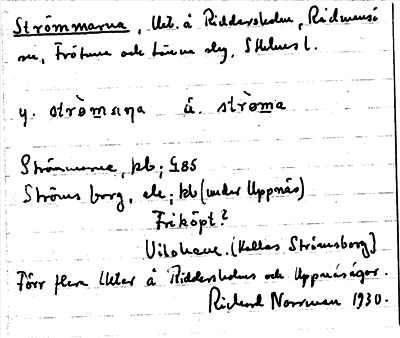 Strömmarna, Utö. å Riddersholm, Rådmansö
sn, Frötuna och Länna slg, Sthlms l.
y. strömana å. ströma
Strömmarna, kb; G85
Ströms borg, ele; kb (under Uppnäs)
Friköpt?
Vilohem. (Kallas Strömsborg)
Förr flera Utor å Riddersholms och Uppnäs ägor.
Richard Norrman 1930.